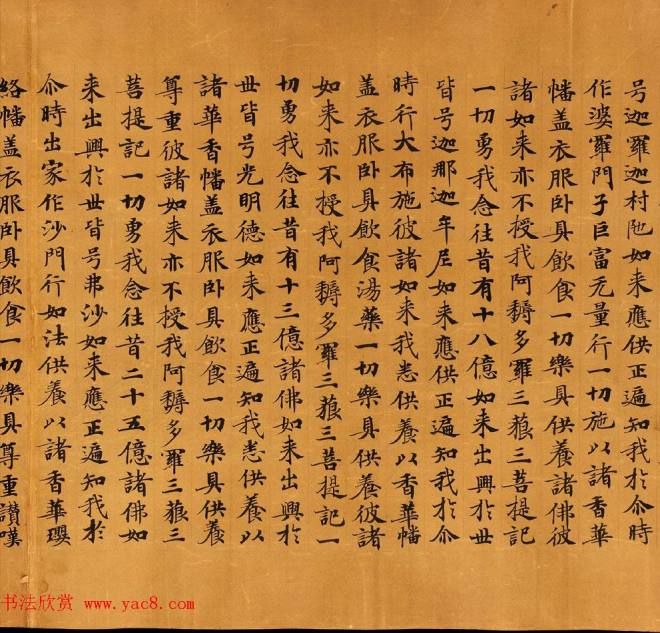 号迦羅迦村陁如来應供正遍知我於尒時
作婆羅門子巨富无量行一切施以諸香華
幡盖衣服卧具飲食一切樂具供養諸佛彼
諸如来亦不授我阿耨多羅三藐三菩提記
一切勇我念往昔有十八億如来出興於世
皆号迦那迦牟尼如来應供正遍知我於尒
時行大布施彼諸如来我悉供養以香華幡
盖衣服卧具飲食湯藥一切樂具供養彼諸
如来亦不授我阿耨多羅三藐三菩提記一
切勇我念往昔有十三億諸佛如来出興於
世皆号光明德如来應正遍知我悉供養以
諸華香幡盖衣服卧具飲食一切樂具供養
尊重彼諸如来亦不授我阿耨多羅三藐三
菩提記一切勇我念往昔二十五億諸佛如
来出興於世皆号弗沙如来應正遍知我於
尒時出家作沙門行如法供養以諸香華瓔
絡幡盖衣服卧具飲食一切樂具尊重讃嘆
书法欣赏 www.yac8.com